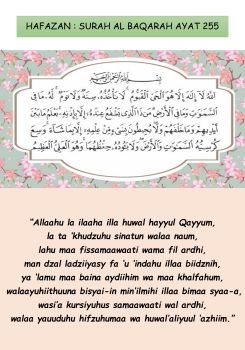 HAFAZAN : SURAH AL BAQARAH AYAT 255
بِسْمِ اللَّهِ الرَّحْمَٰنِ الرَّحِيمِ
اللَّهُ لَا إِلَٰهَ إِلَّا هُوَ الْحَيُّ الْقَيُّومُ لَا تَأْخُذُهُ سِنَةٌ وَلَا نَوْمٌ لَهُ مَا فِي
السَّمَاوَاتِ وَمَا فِي الْأَرْضِ مَنْ ذَا الَّذِي يَشْفَعُ عِنْدَهُ إِلَّا بِإِذْنِهِ يَعْلَمُ مَا بَيْنَ
أَيْدِيهِمْ وَمَا خَلْفَهُمْ وَلَا يُحِيطُونَ بِشَيْءٍ مِنْ عِلْمِهِ إِلَّا بِمَا شَاءَ وَسِعَ
كُرْسِيُّهُ السَّمَاوَاتِ وَالْأَرْضَ وَلَا يَئُودُهُ حِفْظُهُمَا وَهُوَ الْعَلِيُّ الْعَظِيمُ
"Allaahu la ilaaha illa huwal hayyul Qayyum,
la ta 'khudzuhu sinatun walaa naum,
lahu maa fissamaawaati wama fil ardhi,
man dzal ladziiyasy fa 'u 'indahu illaa biidznih,
ya 'lamu maa baina aydiihim wa maa khalfahum,
walaayuhiithuuna bisyai-in min'ilmihi illaa bimaa syaa-a,
wasi'a kursiyuhus samaawaati wal ardhi,
walaa yauuduhu hifzuhumaa wa huwal'aliyyul 'azhiim."